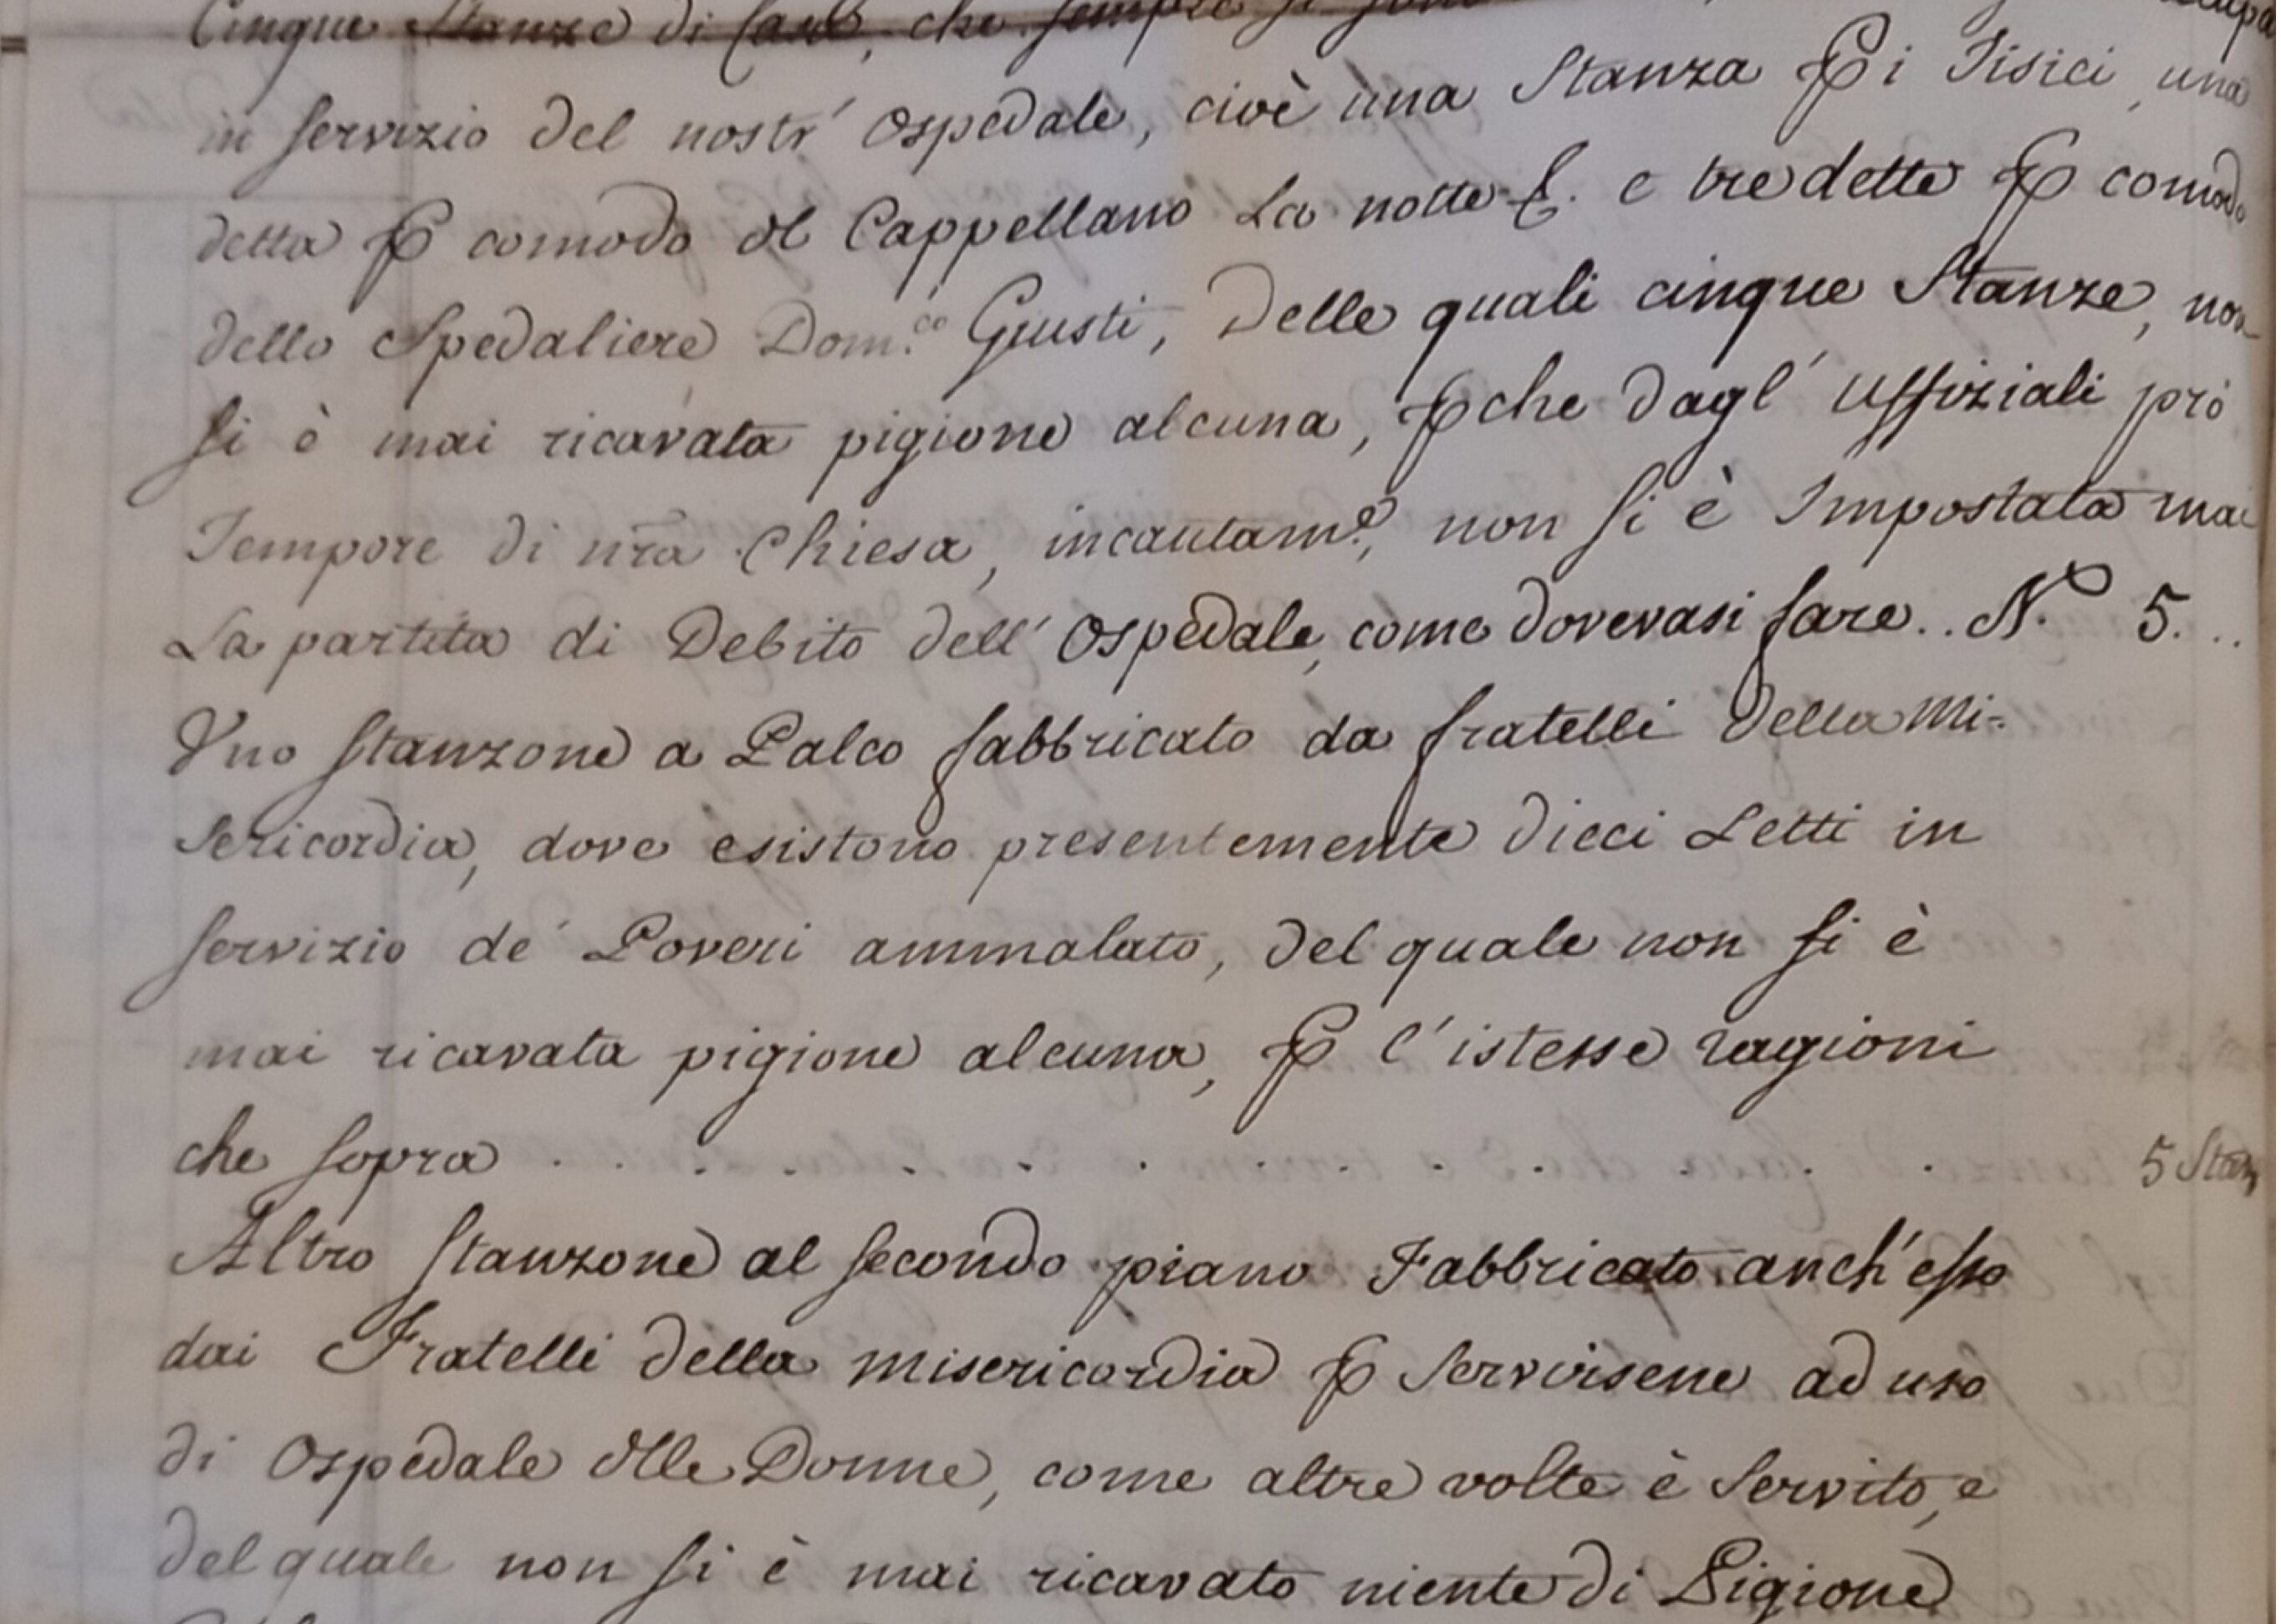 Cinque Stanze di Casa, che sempre si sono
in servizio del nostr' Ospedale, cioè una Stanza ꝑ i Tisici, una
detta ꝑ comodo dl Cappellano La notte &. e tre dette ꝑ comodo
dello Spedaliere Dom.co Giusti, Delle quali cinque Stanze, non
si è mai ricavata pigione alcuna, ꝑche dagl' Uffiziali prò
Tempore di nr̃a Chiesa, incautam.e, non si è Impostata mai
La partita di Debito dell' Ospedale, come dovevasi fare.. N.o 5...
Uno stanzone a Palco fabbricato da fratelli della Mi=
sericordia, dove esistono presentemente dieci Letti in
servizio de' Poveri ammalato, del quale non si è
mai ricavata pigione alcuna, ꝑ l'istesse ragioni
che sopra . . . . . . . . . . . . . 5 Stan
Altro stanzone al secondo piano Fabbricato anch'esso
dai Fratelli della Misericordia ꝑ servirsene ad uso
di Ospedale dlle Donne, come altre volte è servito, e
del quale non si è mai ricavato niente di Pigione